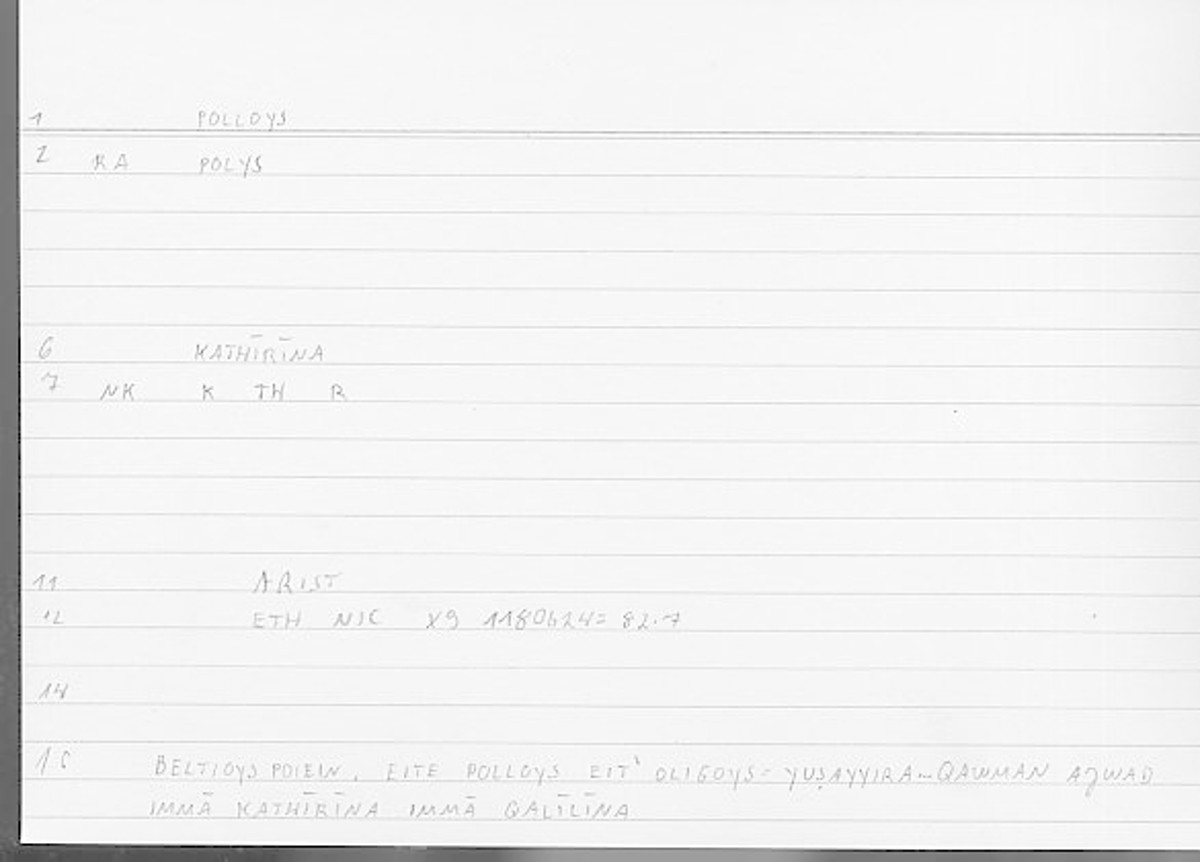 1 POLLOYS
2 RA POLYS
6 KATHĪRĪNA
7 NK K TH R
11 ARIST
12 ETH NIC X9 1180b24= 82.7
14
15 BELTIOYS POIEIN, EITE POLLOYS EIT' OLIGOYS= YUṢAYYIRA... QAWMAN AJWAD
IMMĀ KATHĪRĪNA IMMĀ QALĪLĪNA